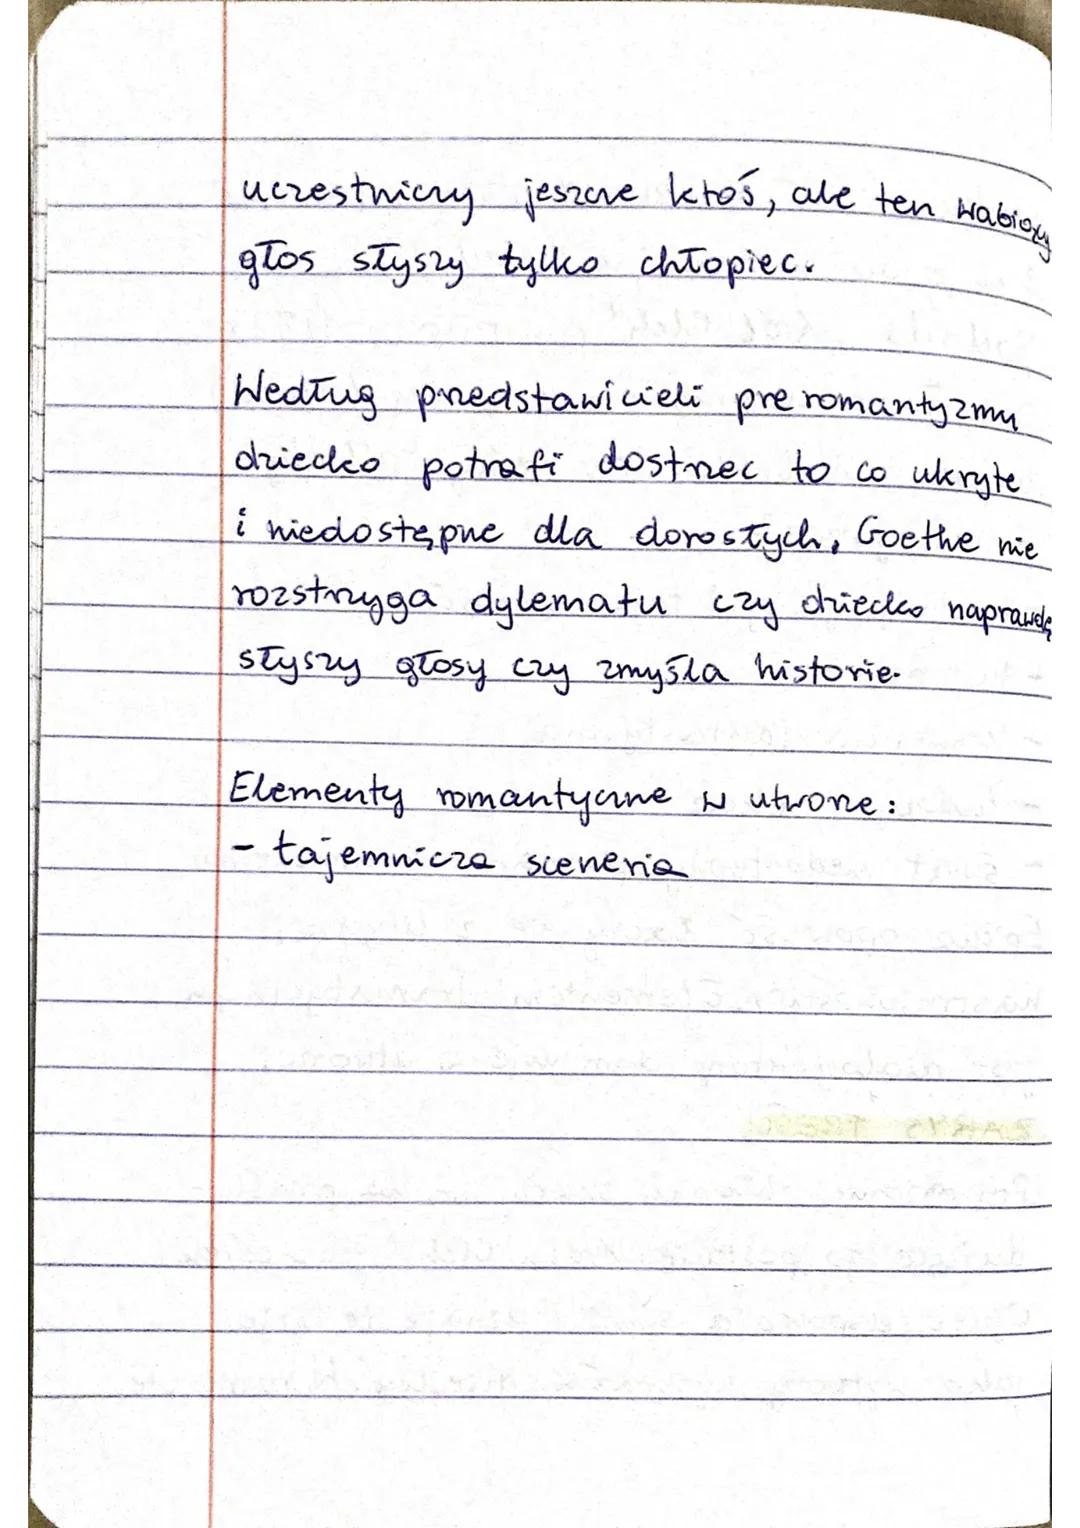 uczestniczy jeszcze ktoś, ale ten wabiący
głos słyszy tylko chłopiec.
Według przedstawicieli preromantyzmu
dziecko potrafi dostrzec to co ukryte
i niedostępne dla dorosłych, Goethe nie
rozstrzyga dylematu czy dziecko naprawdę
słyszy głosy czy zmyśla historie.
Elementy romantyczne w utworze:
- tajemnicza sceneria